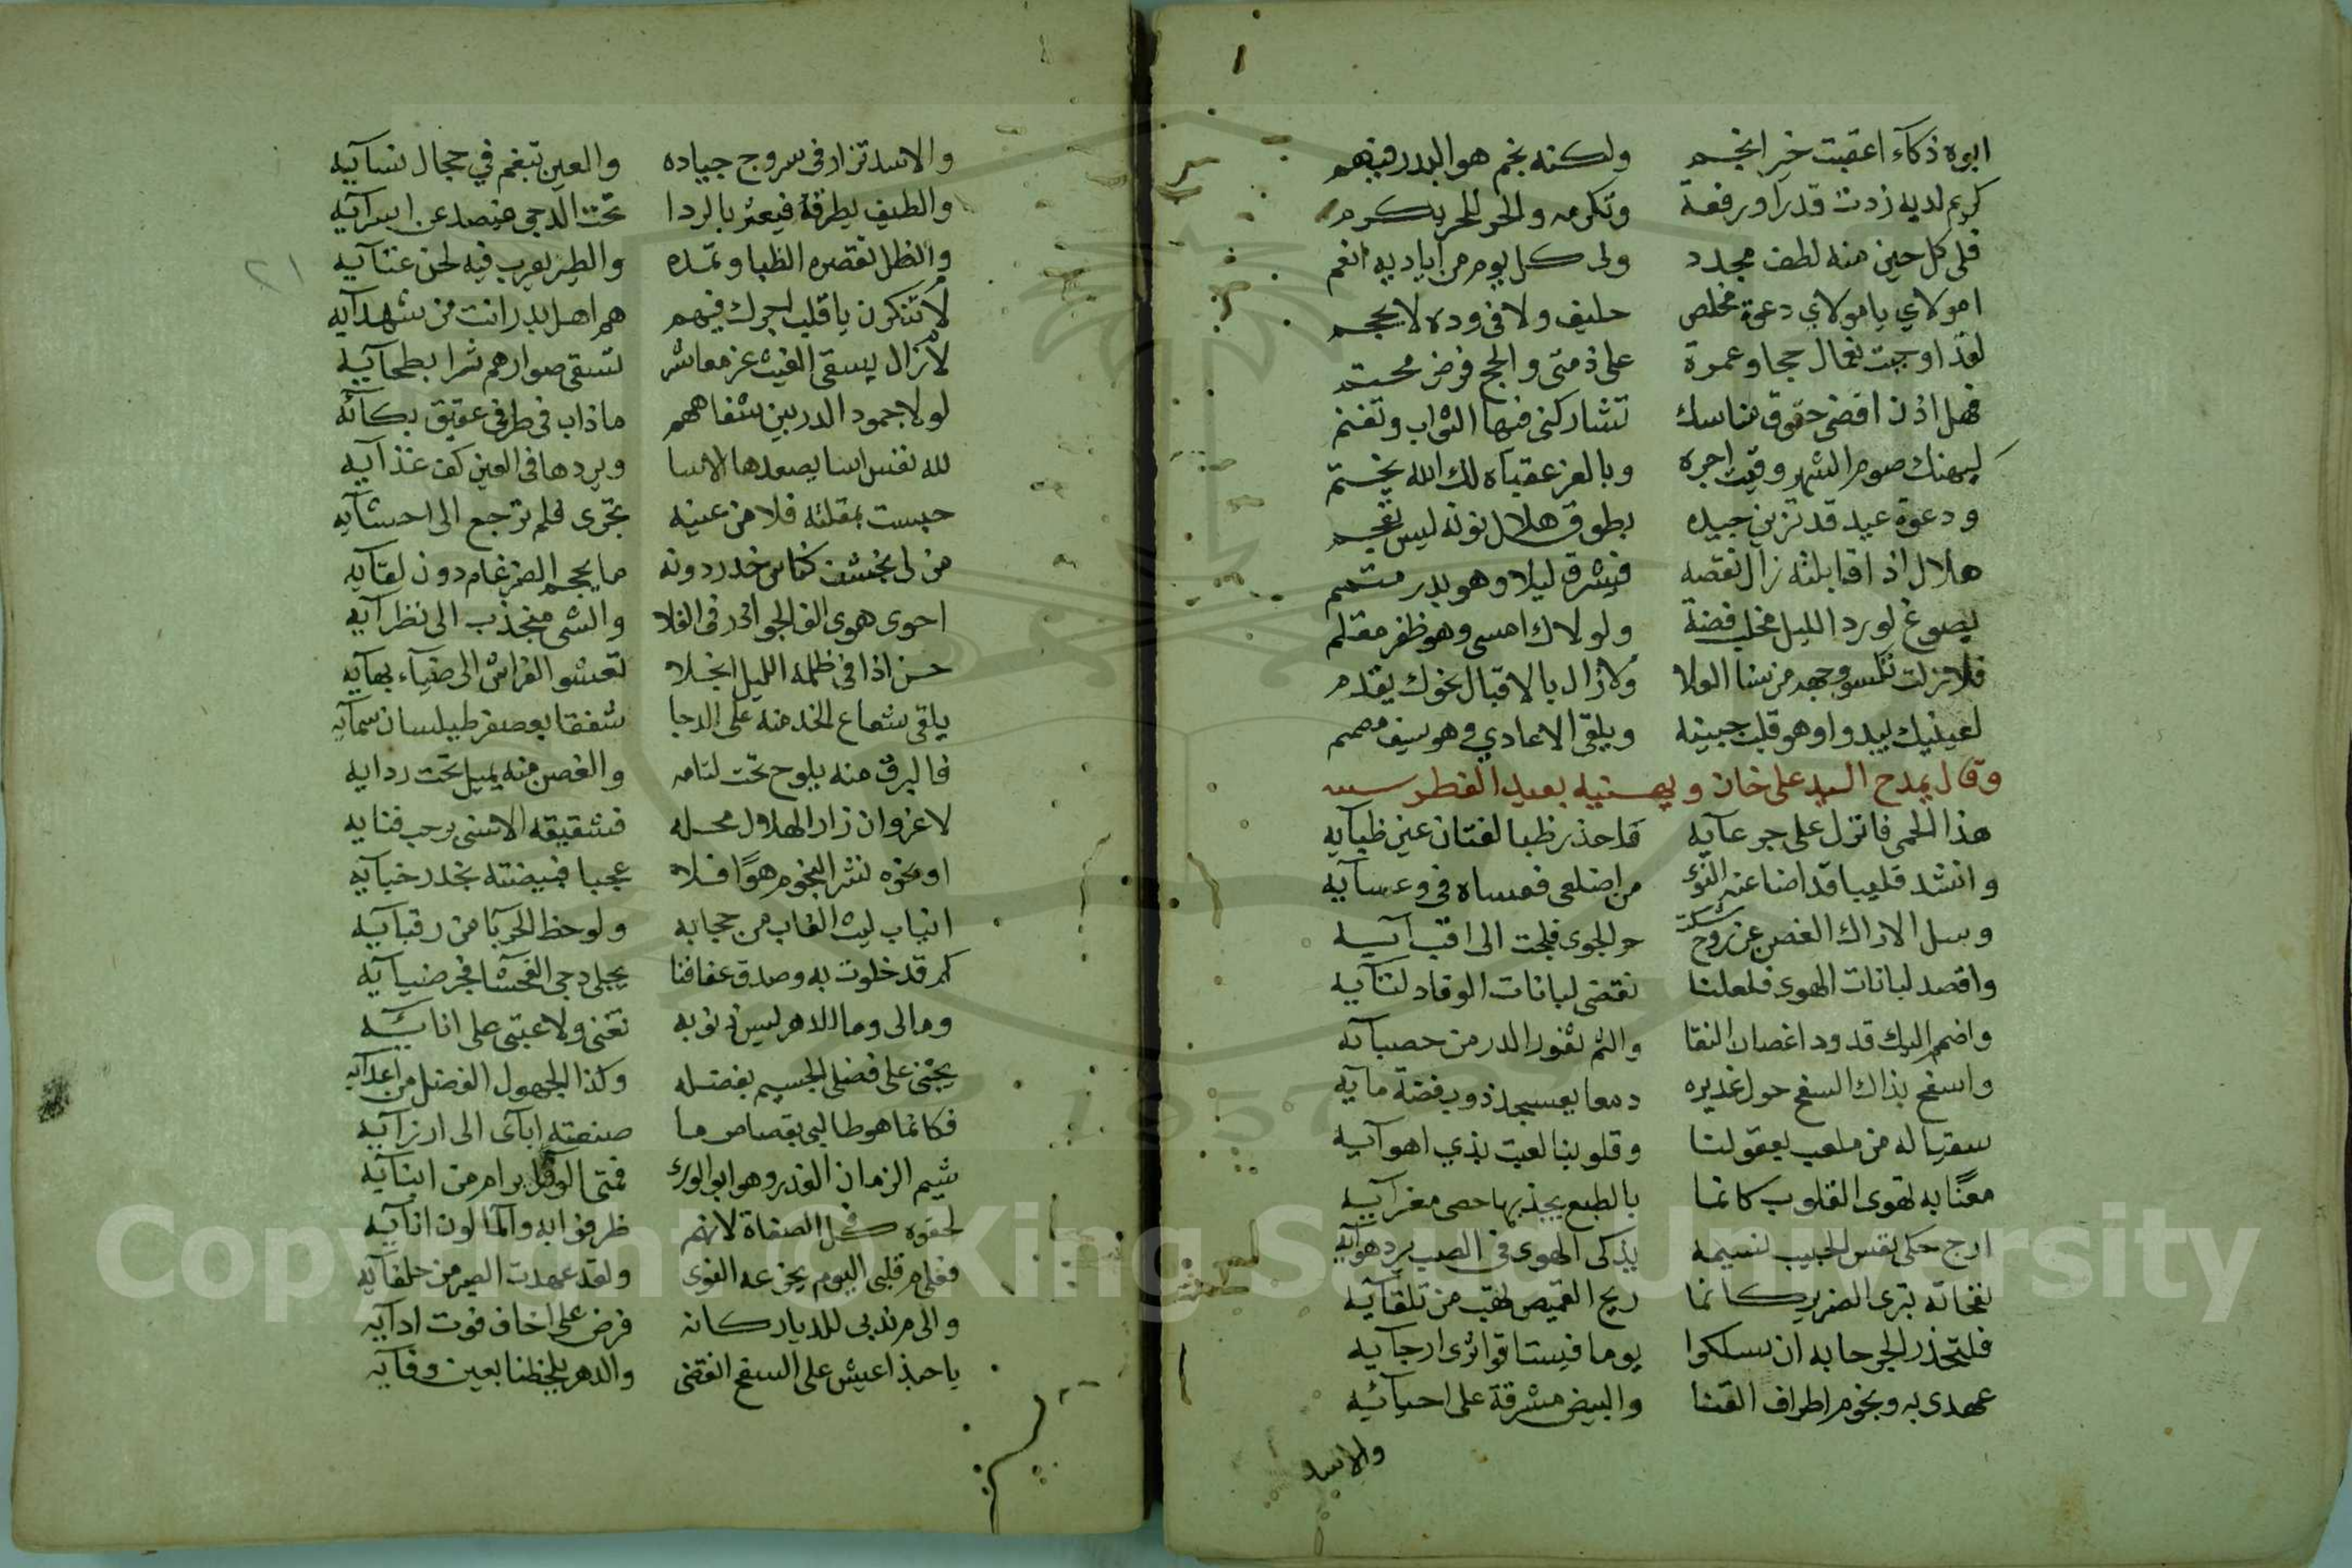 ابوه ذكآء اعقبت خير انجم ولكنه نجم هو البدر فيهم
كريم لديه زدت قدرا ورفعة وتكرمه والحر للحر يكرم
فلى كل حين منه لطف مجدد ولى كل يوم من اياديه انعم
امولاي يا مولاي دعوة مخلص حليف ولا فى وده لا يجمجم
لقد اوجبت نعماك حجا وعمرة على ذمتى والحج فرض محتم
فهل اذن اقضى حقوق مناسك تشاركنى فيها الثواب وتغنم
ليهنك صوم الشهر وفيت اجره وبالعز عقباه لك الله يختم
ودعوة عيد قد تزين جيده بطوق هلال نونه ليس تعجم
هلال اذا قابلته زال نقصه فيشرق ليلا وهو بدر متمم
يصوغ لورد الليل مخلب فضة ولولاك امسى وهو ظفر مقلم
فلا زلت تكسو وجهه من سنا العلا ولا زال بالاقبال نحوك يقدم
لعينيك يبدو وهو قلب جبينه ويلقى الاعادي وهو سيف مصمم
وقال يمدح السيد على خان ويهنيه بعيد الفطر سنه
هذا الحمى فانزل على جرعآيه واحذر ظبا لفتات عين ظبآيه
وانشد قليبا قد اضاعنه النوى من اضلعى فعساه فى وعسآيه
وسل الاراك الغصن عن روح شكت حر الجوى فلجت الى افيآيه
واقصد لبانات الهوى فلعلنا نقضى لبانات الفؤاد لتآيه
واضمم اليك قدود اغصان النقا والثم ثغور الدر من حصبآئه
واسفح بذاك السفح حول غديره دمعا يعسجد ذوب فضة مآيه
سقيا له من ملعب بعقولنا وقلوبنا لعبت يدي اهوآيه
مغنًا به تهوى القلوب كانما بالطبع يجذبها حصى مغرآيه
ارج حكى نفس الحبيب نسيمه يذكى الهوى فى الصب برد هوآيه
نفحاته تبرى الضرير كانما ريح القميص تهب من تلقآيه
فلتحذر الجرحا به ان يسلكوا يوما فيستاقوا ثرى ارجآيه
عهدى به ونجوم اطراف القنا والبيض مشرقة على احيآئيه
والاسد
والاسد تزار فى سروج جياده والعين تبغم في حجال نسآيه
والطيف يطرقه فيعثر بالردا تحت الدجى فيصد عن اسرآيه
والظل تقصره الظبا وتمده والطير يعرب فيه لحن غنآيه
لا تنكرن يا قلب اجرك فيهم هم اهل بدر انت من شهدآيه
لا زال يسقى الغيث غر معاشر تسقى صوارهم ثرا بطحآيه
لولا جمود الدر بين شفاههم ما ذاب فى طرفى عقيق بكآئه
لله نفس اسا يصعدها الاسا ويردها فى العين كف عذآيه
حبست بمقلته فلا من عينه تجرى ولم ترجع الى احشآيه
من لى بخشف كناس خدر دونه ما يحجم الضرغام دون لقآيه
احوى هوى الف الجواذر فى الفلا والشى منجذب الى نظرآيه
حسن اذا فى ظلمة الليل انجلا تعشو الفراش الى ضيآء بهآيه
يلقى شعاع الخد منه على الدجا شفقا يعصفر طيلسان سمآيه
فالبرق منه يلوح تحت لثامه والغصن منه يميل تحت ردايه
لا غرو ان زار الهلال محله فشقيقه الاسنى برحب فنايه
او نحوه نثر النجوم هوًا فلا عجبا فبيضته بخدر خبآيه
انياب ليث الغاب من حجابه ولوحظ الحربآ من رقبآيه
كم قد خلوت به وصدق عفافنا يجلى دجى الفحشآ فجر ضيآيه
ومالى وما للدهر ليس ذنوبه تفنى ولا عتبى على انآئيه
يجنى على فضلى الجسيم بفضله وكذا الجهول الفضل من اعدآيه
فكانما هو طالبى بقصاص ما صنعته ابآئ الى ارزآيه
شيم الزمان الغدر وهو ابو الورى فمتى الوفا يرام من ابنآيه
لحقوه فى كل الصفات لانهم ظرفوا به والمآ لون انآيه
فعلام قلبى اليوم يجزعه النوى ولقد عهدت الصبر من حلفآيه
والى م ندبى للديار كانه فرض على اخاف فوت ادآيه
يا حبذا عيش على السفح انقضى والدهر يلحظنا بعين وفآيه
٢١
Copyright © King Saud University
1957